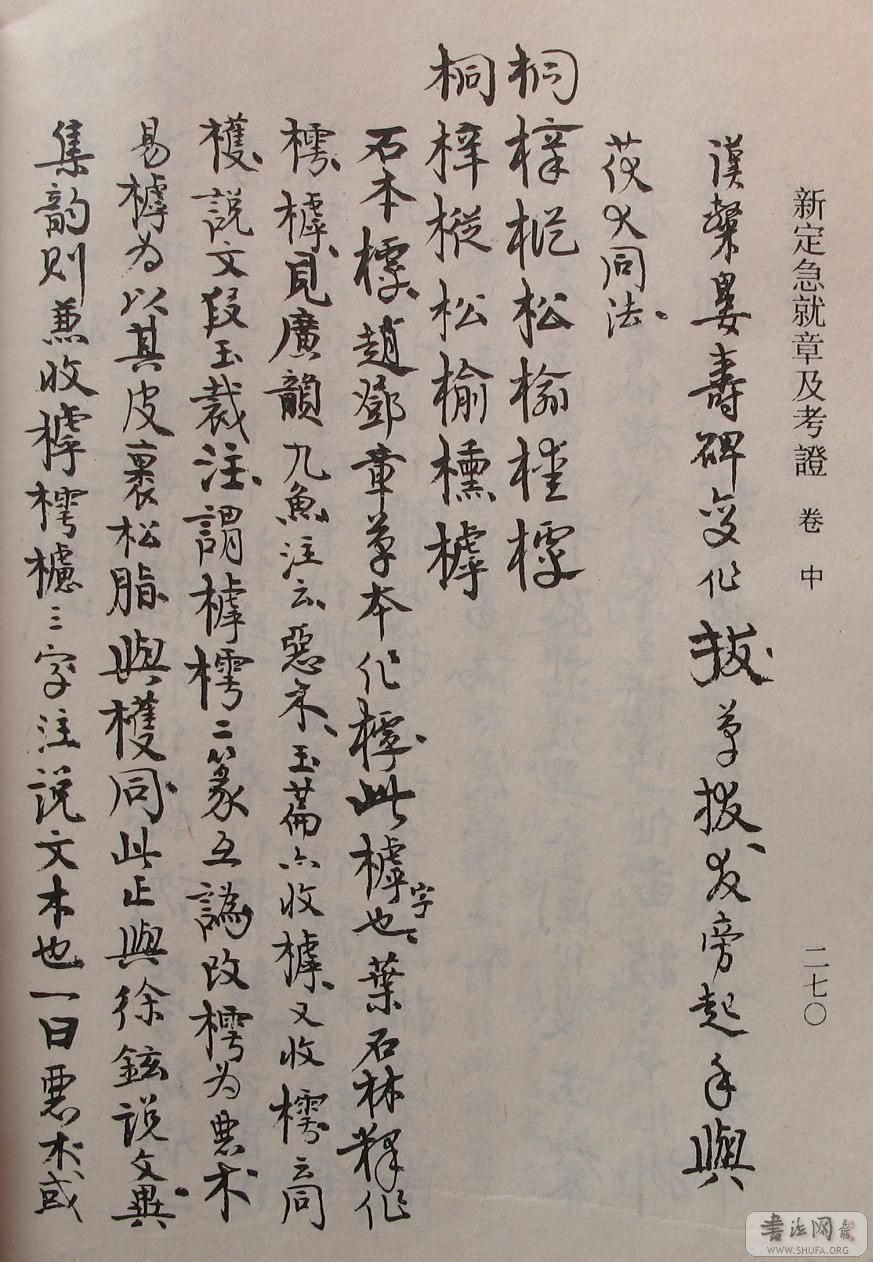 新定急就章及考證 卷中
二七〇
漢槃婁壽碑変作拔草拔友旁起手與
茯犬同法
桐梓樅松榆橞樗
桐梓樅松榆櫄樗
石本樗趙鄧章草本作樗此樗字也葉石林釋作
樗樗見廣韻九魚注云惡木玉篇亦收樗又收樗云同
檴說文段玉裁注謂樗樗二篆互譌改樗為惡木
易樗為以其皮裹松脂與檴同此正與徐鉉說文異
集韵則兼收樗樗櫖三字注説文木也一曰惡木或
書法网
WWW.SHUFA.ORG